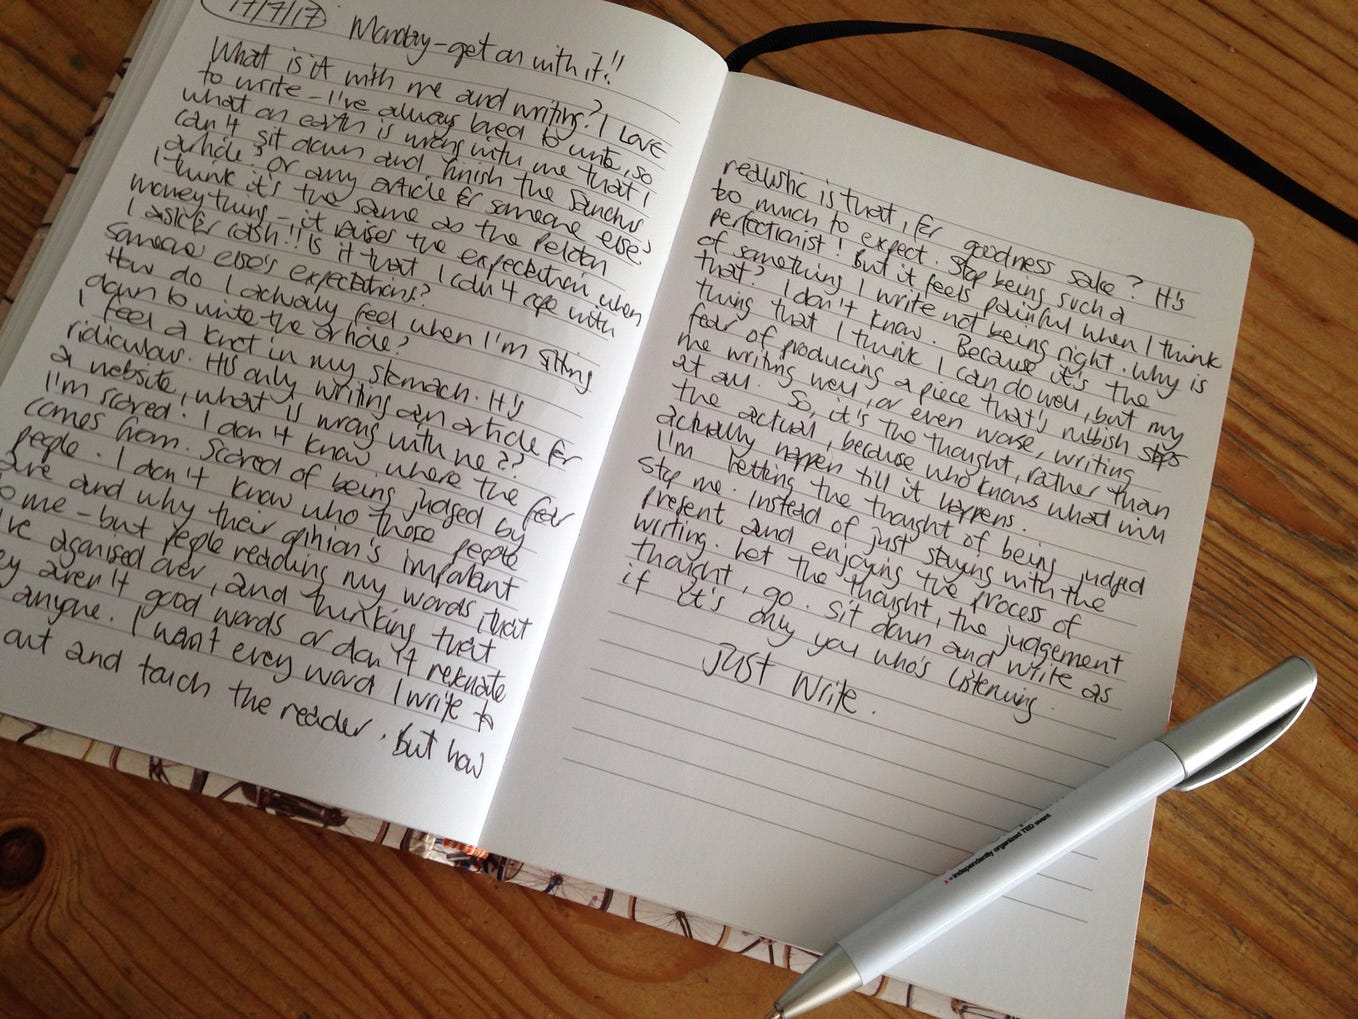 17/7/17
Monday - get on with it!!
What is it with me and writing? I LOVE
to write - I've always loved to write, so
what on earth is wrong with me that I
can't sit down and finish the
article? Or any article for someone else?
I think it's the same as the
money thing - it raises the expectation when
I ask for cash!! Is it that I can't cope with
someone else's expectations?
How do I actually feel when I'm sitting
down to write the article?
I feel a knot in my stomach. It's
ridiculous. It's only writing an article for
a website, what is wrong with me??
I'm scared. I don't know where the fear
comes from. Scared of being judged by
people. I don't know who those people
are and why their opinion's important
to me - but people reading my words that
I've agonised over, and thinking that
they aren't good words or don't resonate
anyone. I want every word I write to
out and touch the reader. But how
realistic is that, for goodness sake? It's
too much to expect. Stop being such a
perfectionist! But it feels painful when I think
of something I write not being right. Why is
that? I don't know. Because it's the
thing that I think I can do well, but my
fear of producing a piece that's rubbish stops
me writing well, or even worse, writing
at all. So, it's the thought, rather than
the actual, because who knows what will
actually happen till it happens.
I'm letting the thought of being judged
stop me. Instead of just staying with the
present and enjoying the process of
writing. Let the thought, the judgement
thought, go. Sit down and write as
if it's only you who's listening.
Just write.
x = independently organized TED event